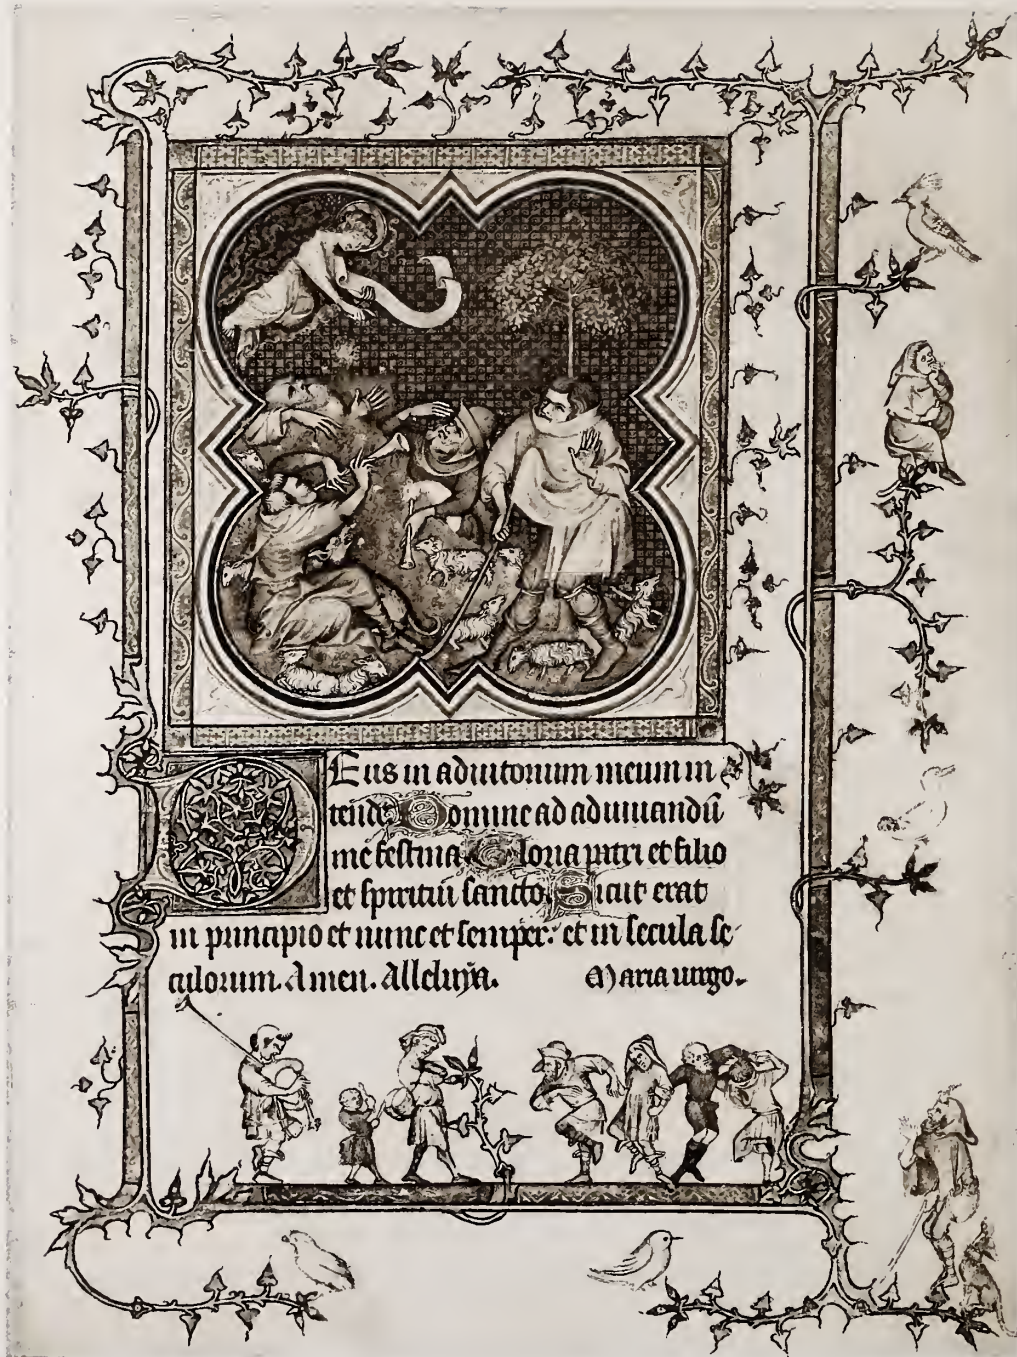 Deus in adiutorium meum in
tende Domine ad adiuuandū
me festina. Gloria patri et filio
et spiritui sancto. Sicut erat
in principio et nunc et semper: et in secula se
culorum. Amen. Alleluya. Maria uirgo.